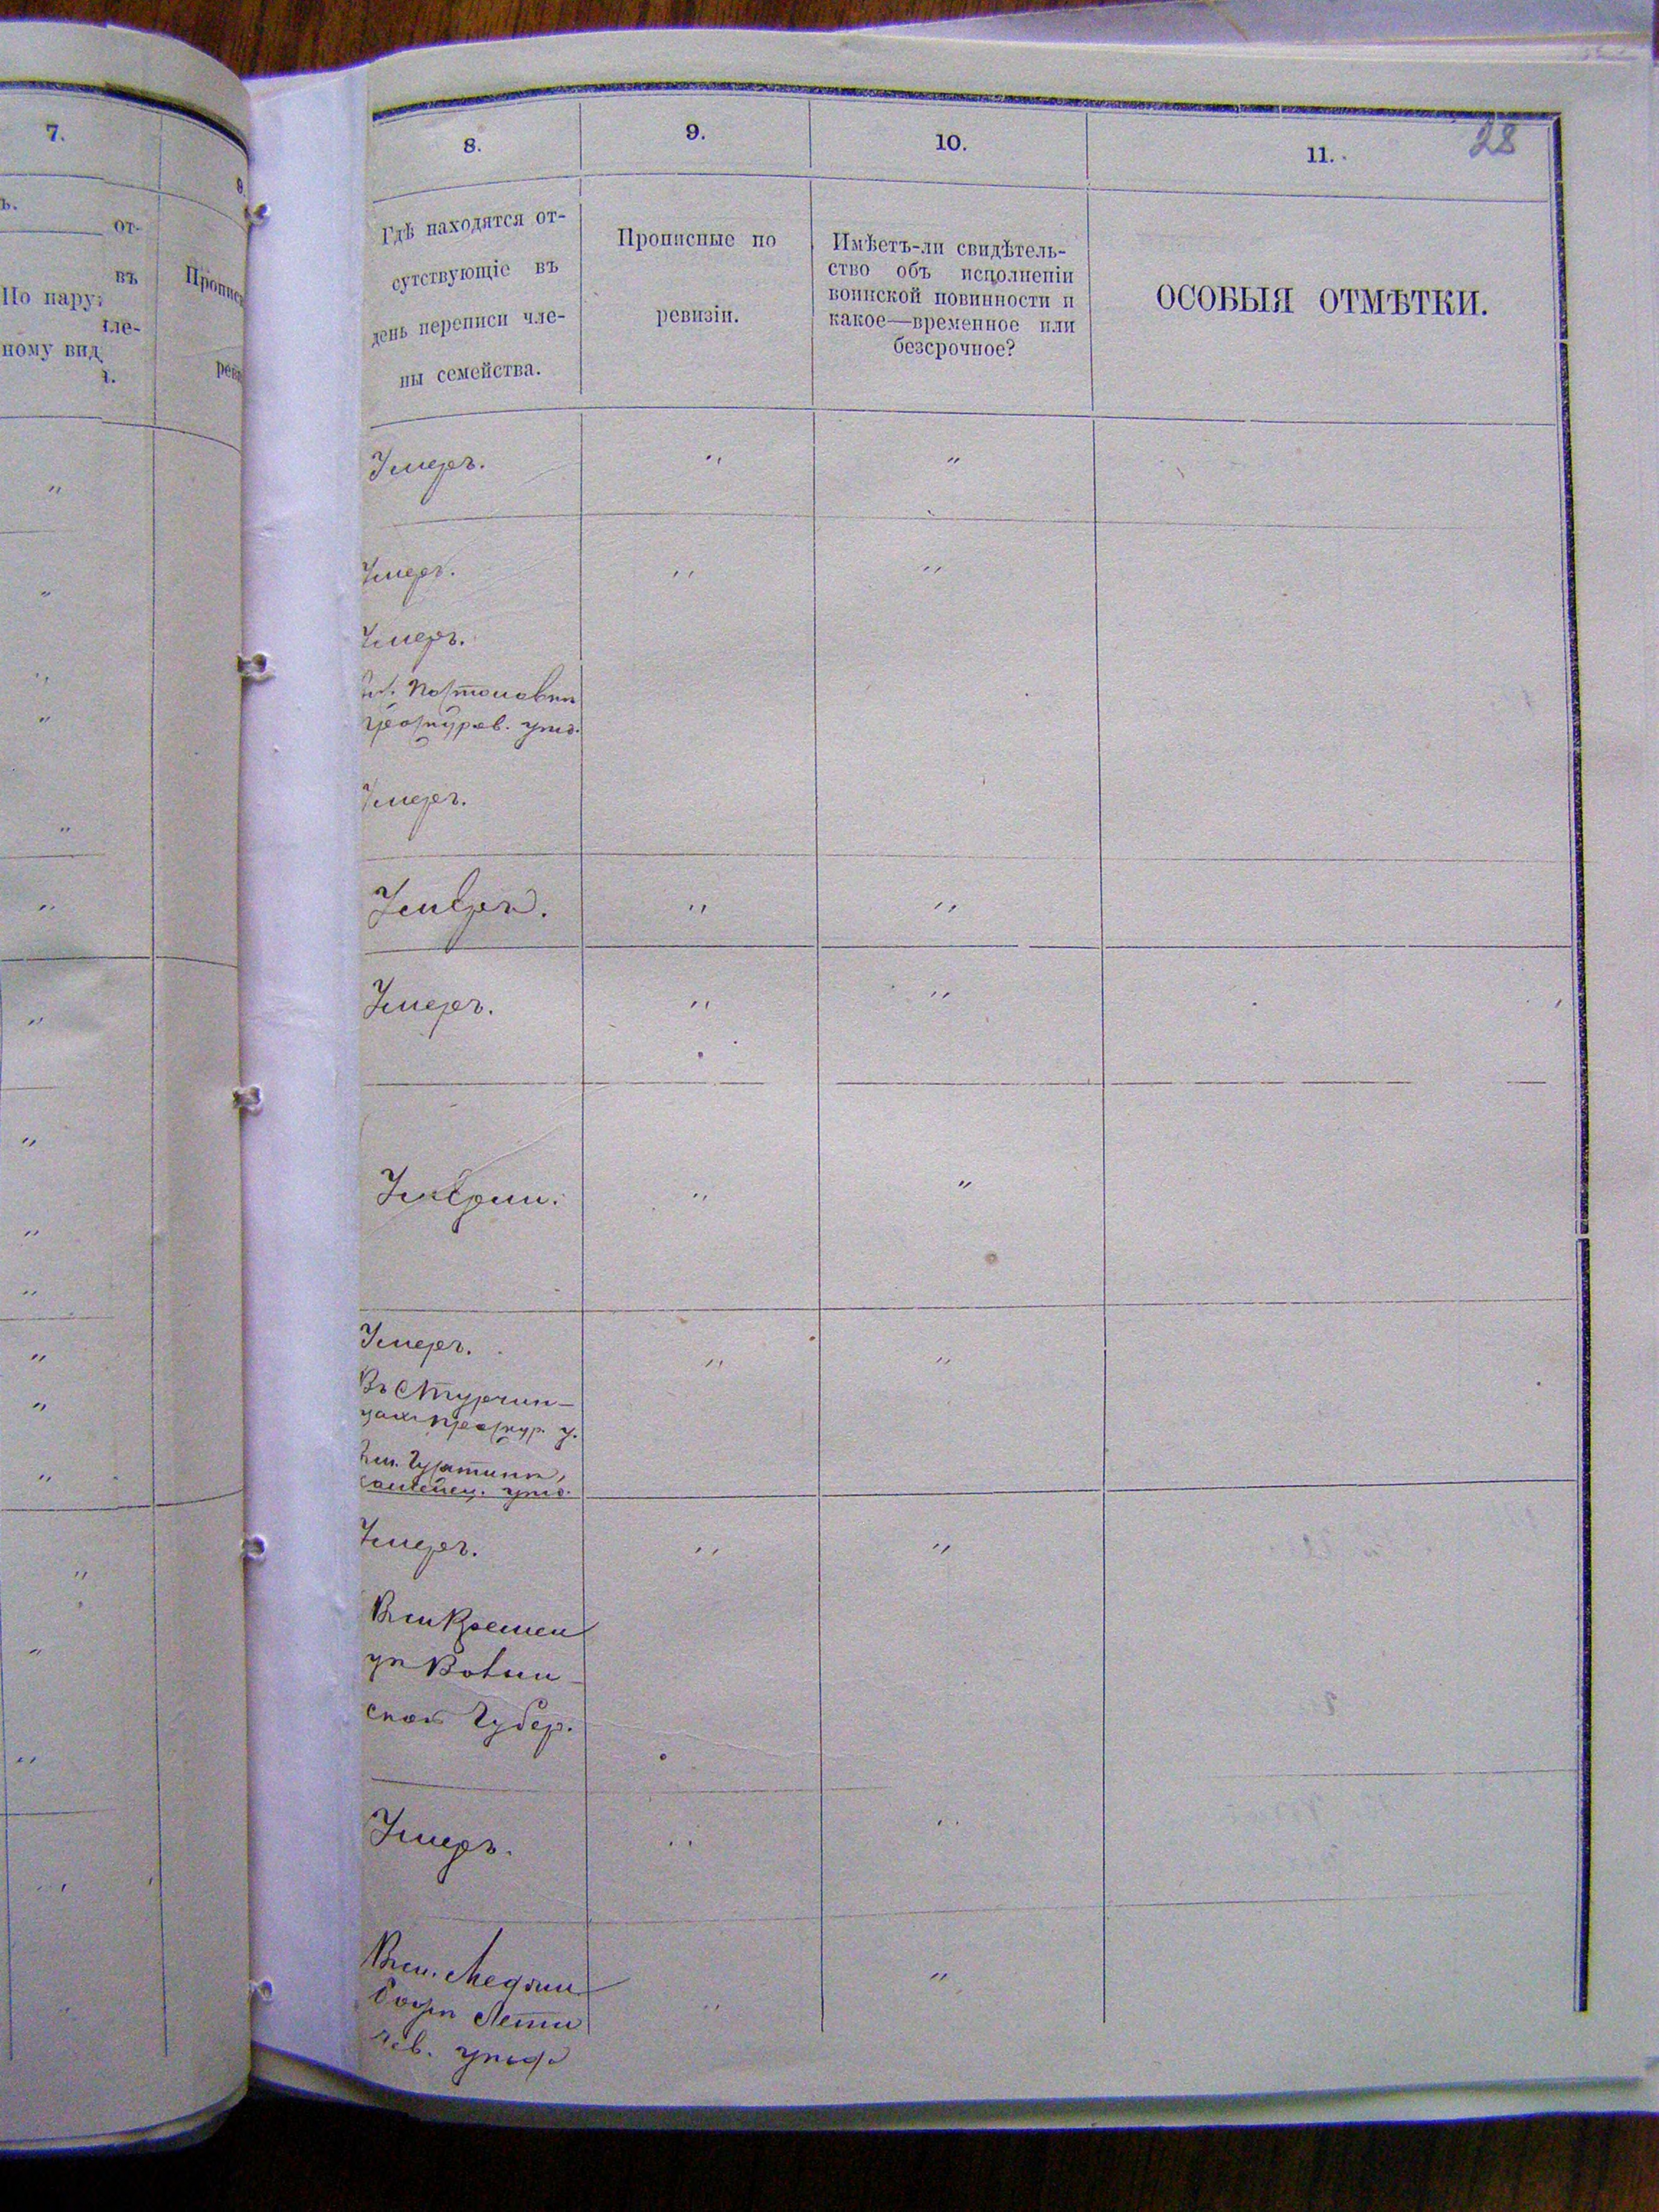 7.
ъ.
от-
въ
По нару:
тле-
ному вид
ı.
8.
Прописн
реви
8.
9.
10.
11.
28
Гдѣ находятся от-
сутствующіе въ
день переписи чле-
ны семейства.
Прописные по
ревизіи.
Имѣетъ-ли свидѣтель-
ство объ исполненіи
воинской повинности и
какое—временное или
безсрочное?
ОСОБЫЯ ОТМѢТКИ.
Умеръ. " "
Умеръ. " "
Умеръ.
Проскуров. уѣз.
Умеръ.
Умеръ. " "
Умеръ. " "
Умерли. " "
Умеръ. " "
Проскур. у.
Вм. Гусятинѣ,
Каменец. уѣз.
Умеръ. " "
Вм Кремен
цѣ Волын
ской Губер.
Умеръ. " "
Вм. Меджи " "
божѣ Лети
чев. уѣзда